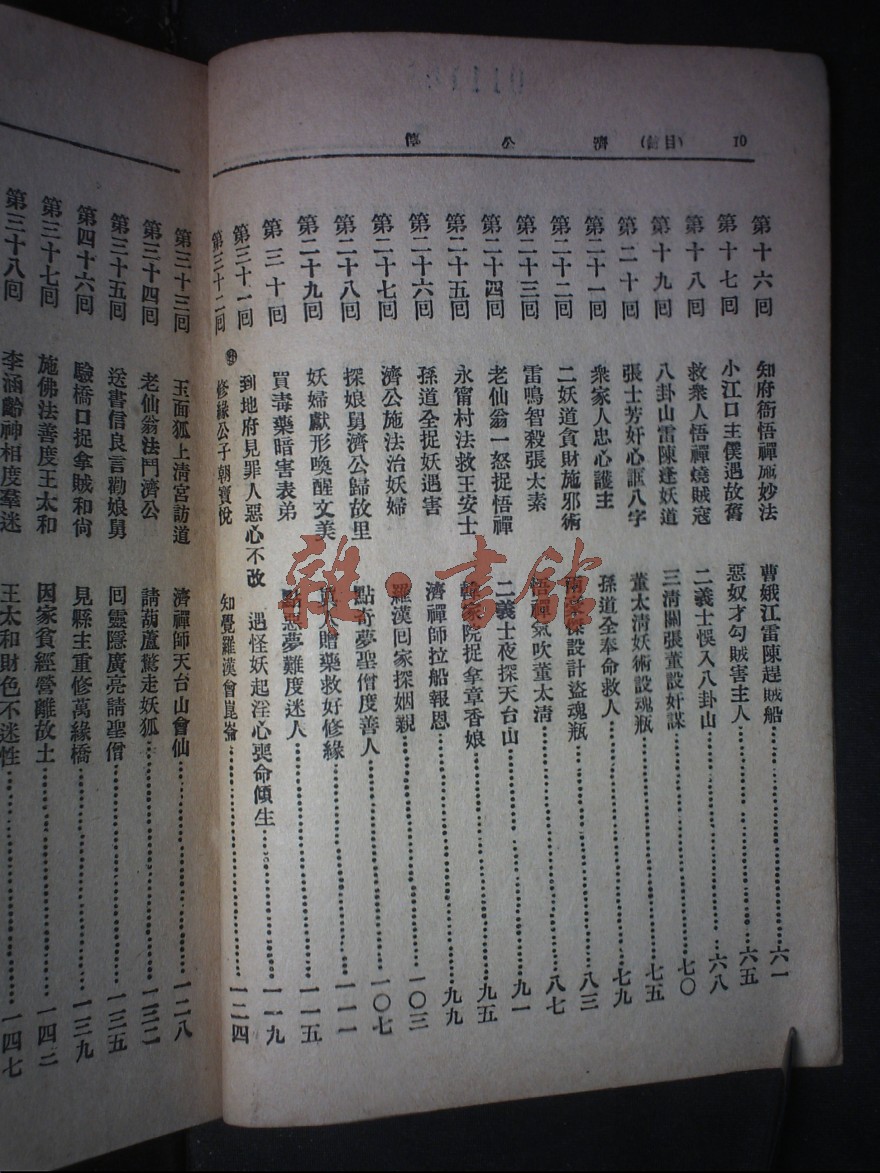 10 (目錄) 濟公傳
第十六回 知府衙悟禪施妙法 曹娥江雷陳趕賊船 六一
第十七回 小江口主僕遇故舊 惡奴才勾賊害主人 六五
第十八回 救衆人悟禪燒賊寇 二義士悞入八卦山 六八
第十九回 八卦山雷陳逢妖道 三清關張董設奸謀 七〇
第二十回 張士芳奸心誆八字 董太清妖術設魂瓶 七五
第二十一回 衆家人忠心護主 孫道全奉命救人 七九
第二十二回 二妖道貪財施邪術 兩豪傑設計盜魂瓶 八三
第二十三回 雷鳴智殺張太素 悟禪氣吹董太清 八七
第二十四回 老仙翁一怒捉悟禪 二義士夜探天台山 九一
第二十五回 永甯村法救王安士 韓家院捉拿章香娘 九五
第二十六回 孫道全捉妖遇害 濟禪師拉船報恩 九九
第二十七回 濟公施法治妖婦 羅漢回家探姻親 一〇三
第二十八回 探娘舅濟公歸故里 點奇夢聖僧度善人 一〇七
第二十九回 妖婦獻形喚醒文美 真人贈藥救好修緣 一一一
第三十回 買毒藥暗害表弟 點惡夢難度迷人 一一五
第三十一回 到地府見罪人惡心不改 遇怪妖起淫心喪命傾生 一一九
第三十二回 修緣公子朝寶悅 知覺羅漢會崑崙 一二四
第三十三回 玉面狐上清宮訪道 濟禪師天台山會仙 一二八
第三十四回 老仙翁法鬥濟公 請葫蘆驚走妖狐 一三二
第三十五回 送書信良言勸娘舅 回靈隱廣亮請聖僧 一三五
第四十六回 驗橋口捉拿賊和尙 見縣主重修萬緣橋 一三九
第三十七回 施佛法善度王太和 因家貧經營離故土 一四二
第三十八回 李涵齡神相度羣迷 王太和財色不迷性 一四七
雜·書館